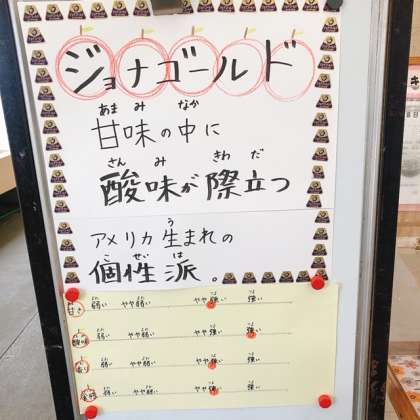 ジョナゴールド
あまみ なか
甘味の中に
さんみ きわだ
酸味が際立つ
う
アメリカ生まれの
こせいは
個性派。
甘さ 弱い やや弱い やや強い 強い
酸味 弱い やや弱い やや強い 強い
香り 弱い やや弱い やや強い 強い
弱い やや弱い やや強い 強い